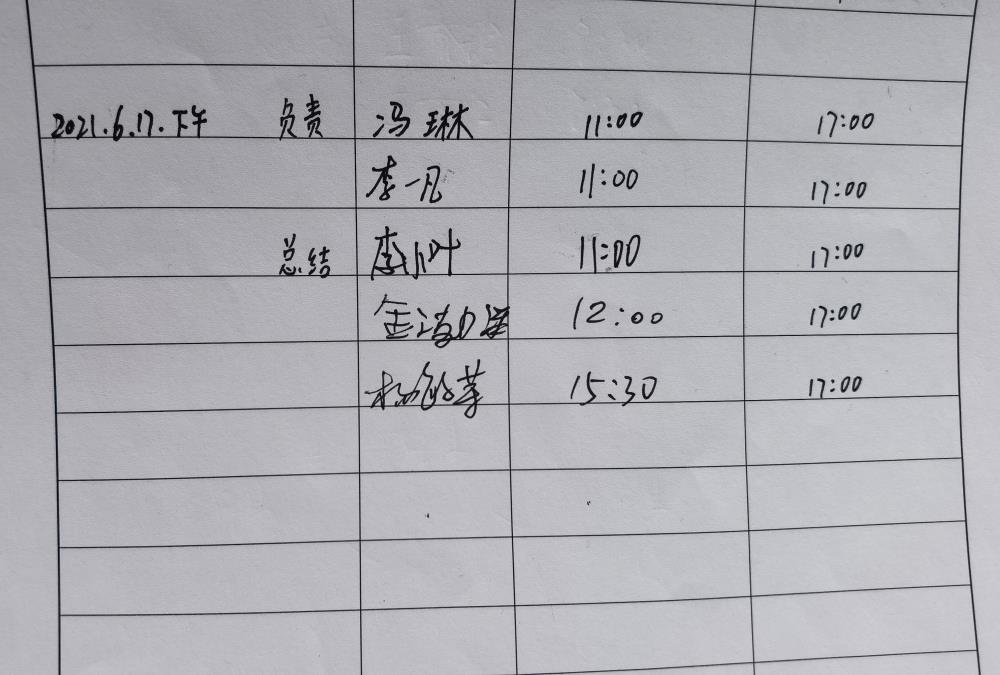 2021.6.17.下午 负责 冯琳 11:00 17:00
李一凡 11:00 17:00
总结 李小叶 11:00 17:00
12:00 17:00
15:30 17:00